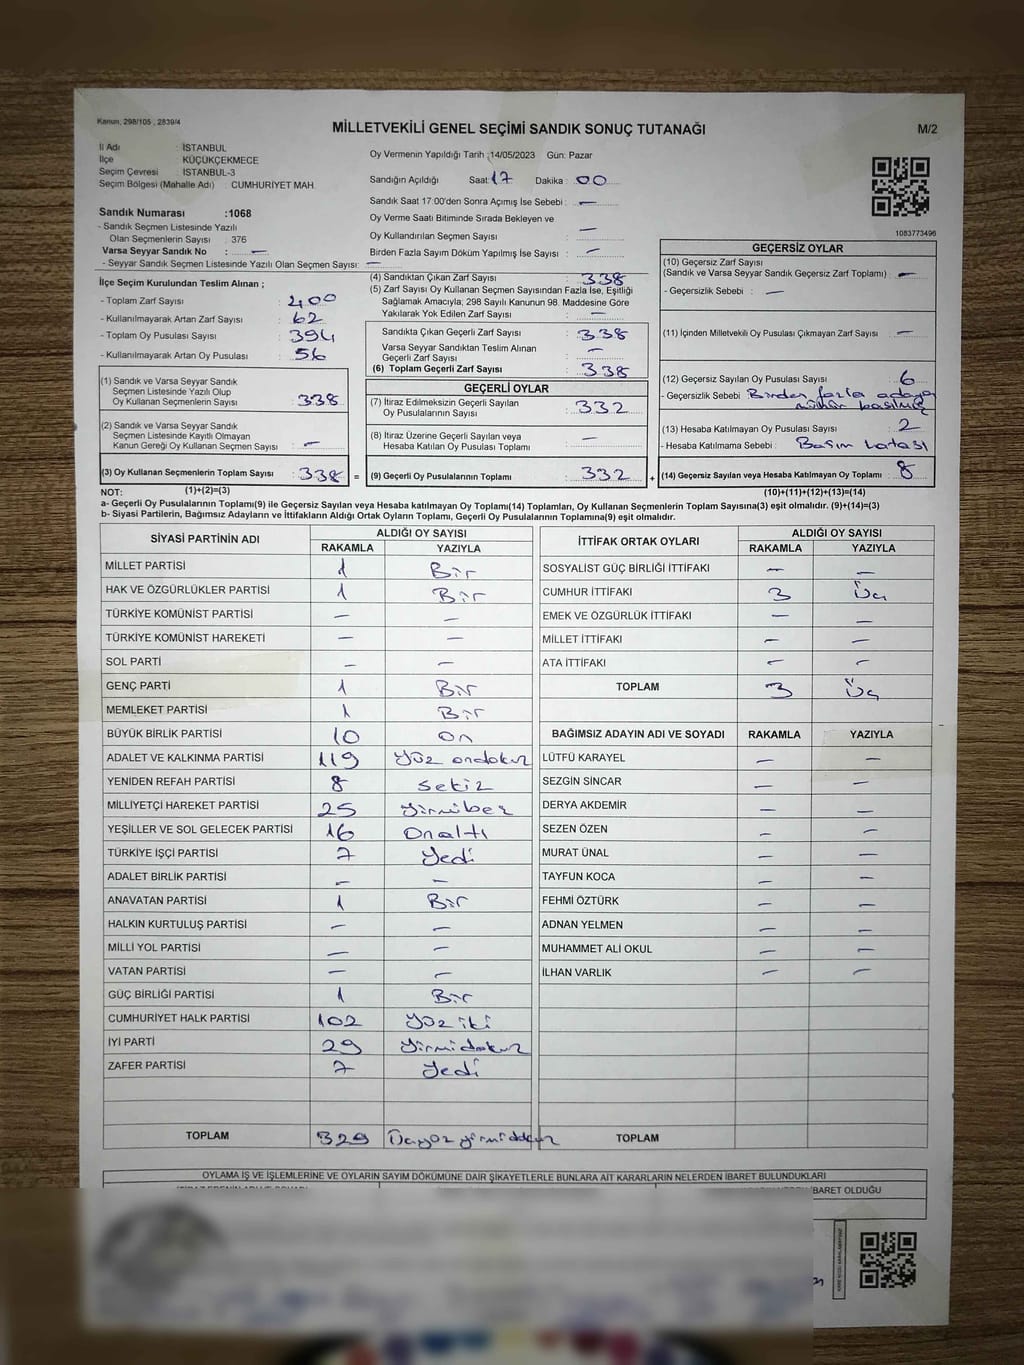 Kanun, 298/105 , 2839/4
MİLLETVEKİLİ GENEL SEÇİMİ SANDIK SONUÇ TUTANAĞI
M/2
İl Adı : İSTANBUL
İlçe KÜÇÜKÇEKMECE
Seçim Çevresi : İSTANBUL-3
Seçim Bölgesi (Mahalle Adı) : CUMHURİYET MAH.
Oy Vermenin Yapıldığı Tarih :14/05/2023 Gün: Pazar
Sandığın Açıldığı Saat: 17 Dakika : 00
Sandık Saat 17:00'den Sonra Açımış İse Sebebi : —
Oy Verme Saati Bitiminde Sırada Bekleyen ve
Oy Kullandırılan Seçmen Sayısı : —
Birden Fazla Sayım Döküm Yapılmış İse Sayısı : —
Sandık Numarası :1068
- Sandık Seçmen Listesinde Yazılı
Olan Seçmenlerin Sayısı : 376
Varsa Seyyar Sandık No : —
- Seyyar Sandık Seçmen Listesinde Yazılı Olan Seçmen Sayısı: —
1083773496
İlçe Seçim Kurulundan Teslim Alınan ;
- Toplam Zarf Sayısı : 400
- Kullanılmayarak Artan Zarf Sayısı : 62
- Toplam Oy Pusulası Sayısı : 394
- Kullanılmayarak Artan Oy Pusulası : 56
(1) Sandık ve Varsa Seyyar Sandık
Seçmen Listesinde Yazılı Olup
Oy Kullanan Seçmenlerin Sayısı : 338
(2) Sandık ve Varsa Seyyar Sandık
Seçmen Listesinde Kayıtlı Olmayan
Kanun Gereği Oy Kullanan Seçmen Sayısı : —
(3) Oy Kullanan Seçmenlerin Toplam Sayısı : 338 =
(1)+(2)=(3)
(4) Sandıktan Çıkan Zarf Sayısı : 338
(5) Zarf Sayısı Oy Kullanan Seçmen Sayısından Fazla İse, Eşitliği
Sağlamak Amacıyla; 298 Sayılı Kanunun 98. Maddesine Göre
Yakılarak Yok Edilen Zarf Sayısı : —
Sandıkta Çıkan Geçerli Zarf Sayısı : 338
Varsa Seyyar Sandıktan Teslim Alınan
Geçerli Zarf Sayısı : —
(6) Toplam Geçerli Zarf Sayısı : 338
GEÇERLİ OYLAR
(7) İtiraz Edilmeksizin Geçerli Sayılan
Oy Pusulalarının Sayısı : 332
(8) İtiraz Üzerine Geçerli Sayılan veya
Hesaba Katılan Oy Pusulası Toplamı : —
(9) Geçerli Oy Pusulalarının Toplamı : 332 +
GEÇERSİZ OYLAR
(10) Geçersiz Zarf Sayısı
(Sandık ve Varsa Seyyar Sandık Geçersiz Zarf Toplamı) : —
- Geçersizlik Sebebi : —
(11) İçinden Milletvekili Oy Pusulası Çıkmayan Zarf Sayısı : —
(12) Geçersiz Sayılan Oy Pusulası Sayısı : 6
- Geçersizlik Sebebi : Birden fazla adaya
mühür basılmış
(13) Hesaba Katılmayan Oy Pusulası Sayısı : 2
- Hesaba Katılmama Sebebi : Basım hatası
(14) Geçersiz Sayılan veya Hesaba Katılmayan Oy Toplamı : 8
(10)+(11)+(12)+(13)=(14)
NOT:
a- Geçerli Oy Pusulalarının Toplamı(9) ile Geçersiz Sayılan veya Hesaba katılmayan Oy Toplamı(14) Toplamları, Oy Kullanan Seçmenlerin Toplam Sayısına(3) eşit olmalıdır. (9)+(14)=(3)
b- Siyasi Partilerin, Bağımsız Adayların ve İttifakların Aldığı Ortak Oyların Toplamı, Geçerli Oy Pusulalarının Toplamına(9) eşit olmalıdır.
SİYASİ PARTİNİN ADI ALDIĞI OY SAYISI
RAKAMLA YAZIYLA
MİLLET PARTİSİ 1 Bir
HAK VE ÖZGÜRLÜKLER PARTİSİ 1 Bir
TÜRKİYE KOMÜNİST PARTİSİ — —
TÜRKİYE KOMÜNİST HAREKETİ — —
SOL PARTİ — —
GENÇ PARTİ 1 Bir
MEMLEKET PARTİSİ 1 Bir
BÜYÜK BİRLİK PARTİSİ 10 on
ADALET VE KALKINMA PARTİSİ 119 Yüz ondokuz
YENİDEN REFAH PARTİSİ 8 sekiz
MİLLİYETÇİ HAREKET PARTİSİ 25 Yirmibeş
YEŞİLLER VE SOL GELECEK PARTİSİ 16 Onaltı
TÜRKİYE İŞÇİ PARTİSİ 7 Yedi
ADALET BİRLİK PARTİSİ — —
ANAVATAN PARTİSİ 1 Bir
HALKIN KURTULUŞ PARTİSİ — —
MİLLİ YOL PARTİSİ — —
VATAN PARTİSİ — —
GÜÇ BİRLİĞİ PARTİSİ 1 Bir
CUMHURİYET HALK PARTİSİ 102 Yüz iki
İYİ PARTİ 29 Yirmidokuz
ZAFER PARTİSİ 7 Yedi
TOPLAM 329 Üçyüz yirmidokuz
İTTİFAK ORTAK OYLARI ALDIĞI OY SAYISI
RAKAMLA YAZIYLA
SOSYALİST GÜÇ BİRLİĞİ İTTİFAKI — —
CUMHUR İTTİFAKI 3 Üç
EMEK VE ÖZGÜRLÜK İTTİFAKI — —
MİLLET İTTİFAKI — —
ATA İTTİFAKI — —
TOPLAM 3 Üç
BAĞIMSIZ ADAYIN ADI VE SOYADI RAKAMLA YAZIYLA
LÜTFÜ KARAYEL — —
SEZGİN SİNCAR — —
DERYA AKDEMİR — —
SEZEN ÖZEN — —
MURAT ÜNAL — —
TAYFUN KOCA — —
FEHMİ ÖZTÜRK — —
ADNAN YELMEN — —
MUHAMMET ALİ OKUL — —
İLHAN VARLIK — —
TOPLAM
OYLAMA İŞ VE İŞLEMLERİNE VE OYLARIN SAYIM DÖKÜMÜNE DAİR ŞİKAYETLERLE BUNLARA AİT KARARLARIN NELERDEN İBARET BULUNDUKLARI
İBARET OLDUĞU